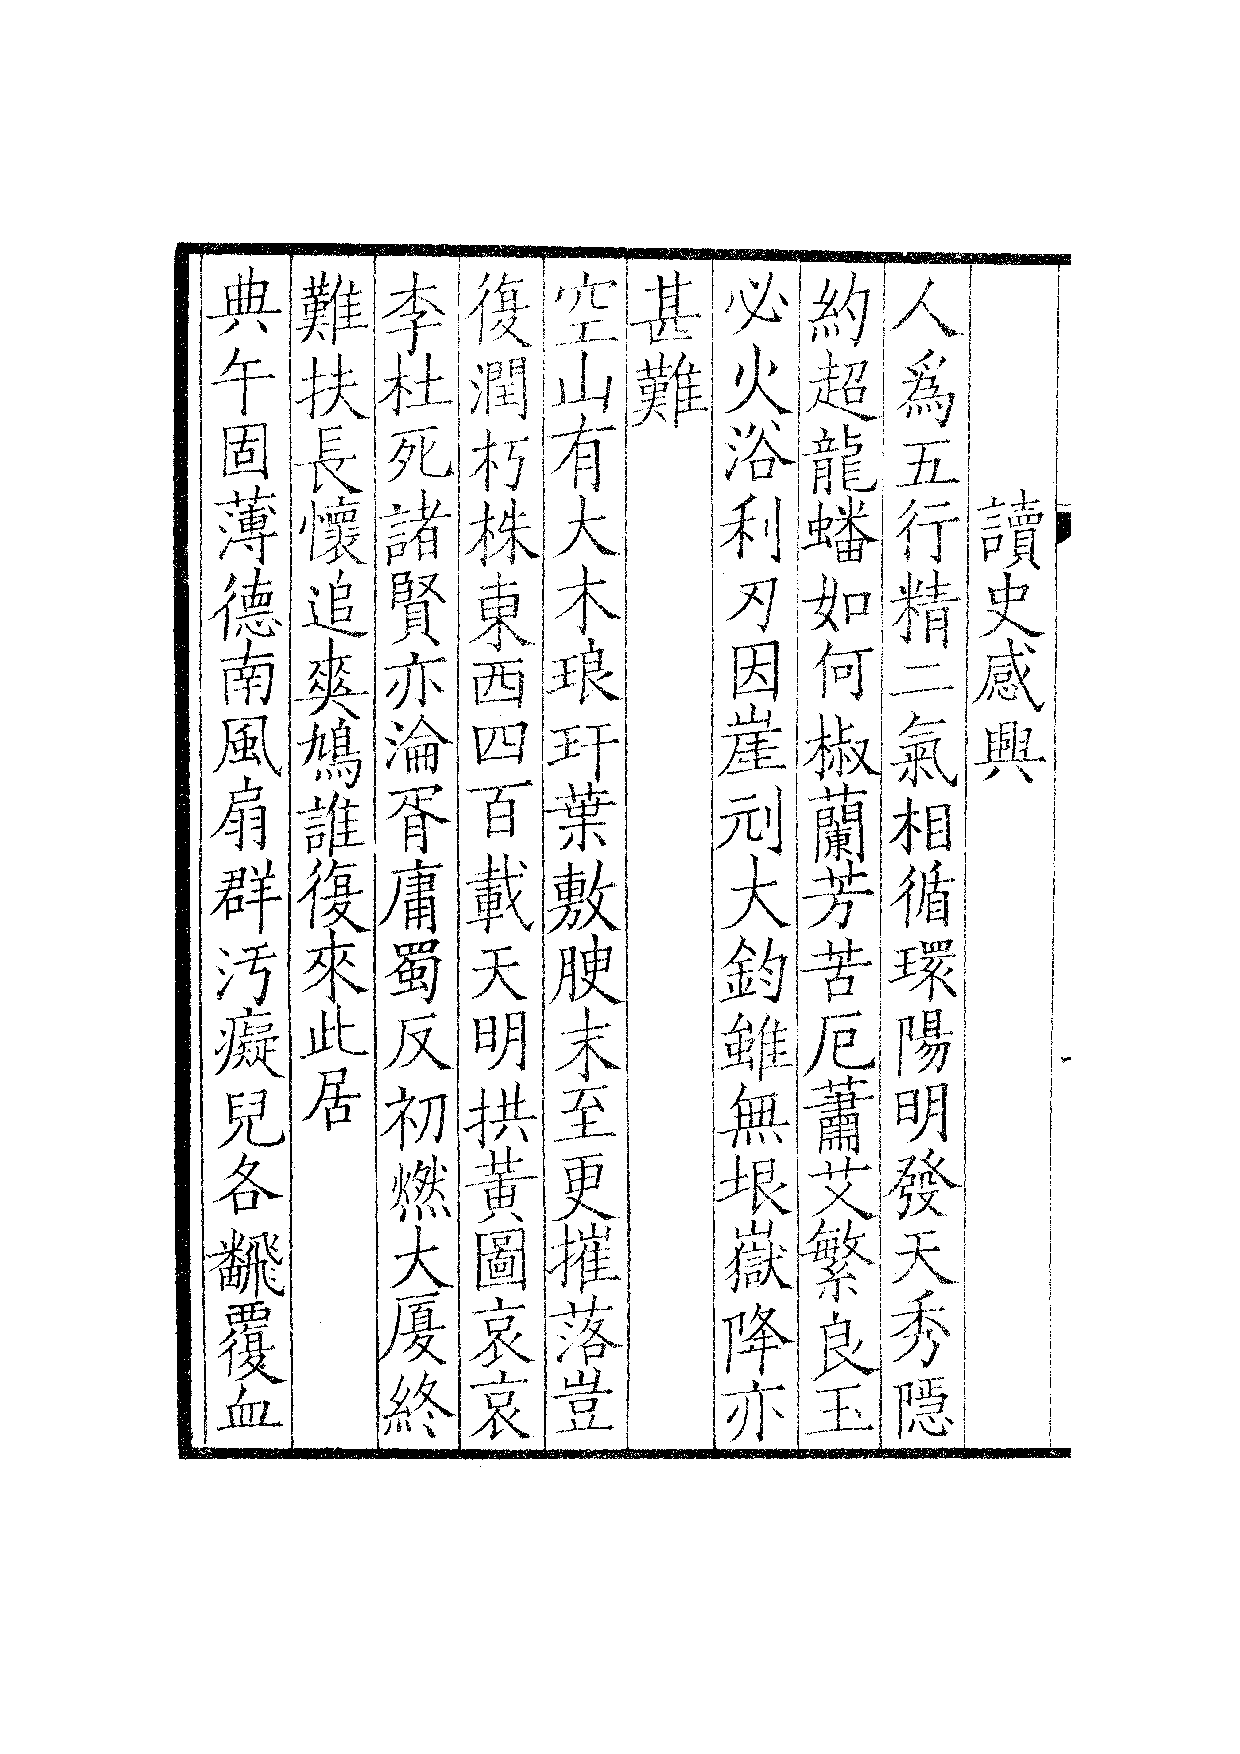 讀史感興
人爲五行精二氣相循環陽明發天秀隠
約超龍蟠如何椒蘭芳苦厄蕭艾繁良玉
必火浴利刃因崖刓大鈞雖無垠嶽降亦
甚難
空山有大木琅玕葉敷腴末至更摧落豈
復潤朽株東西四百載天明拱黃圖哀哀
李杜死諸賢亦淪胥庸蜀反初燃大厦終
難扶長懷追爽鳩誰復來此居
典午固薄德南風扇群汚癡兒各飜覆血